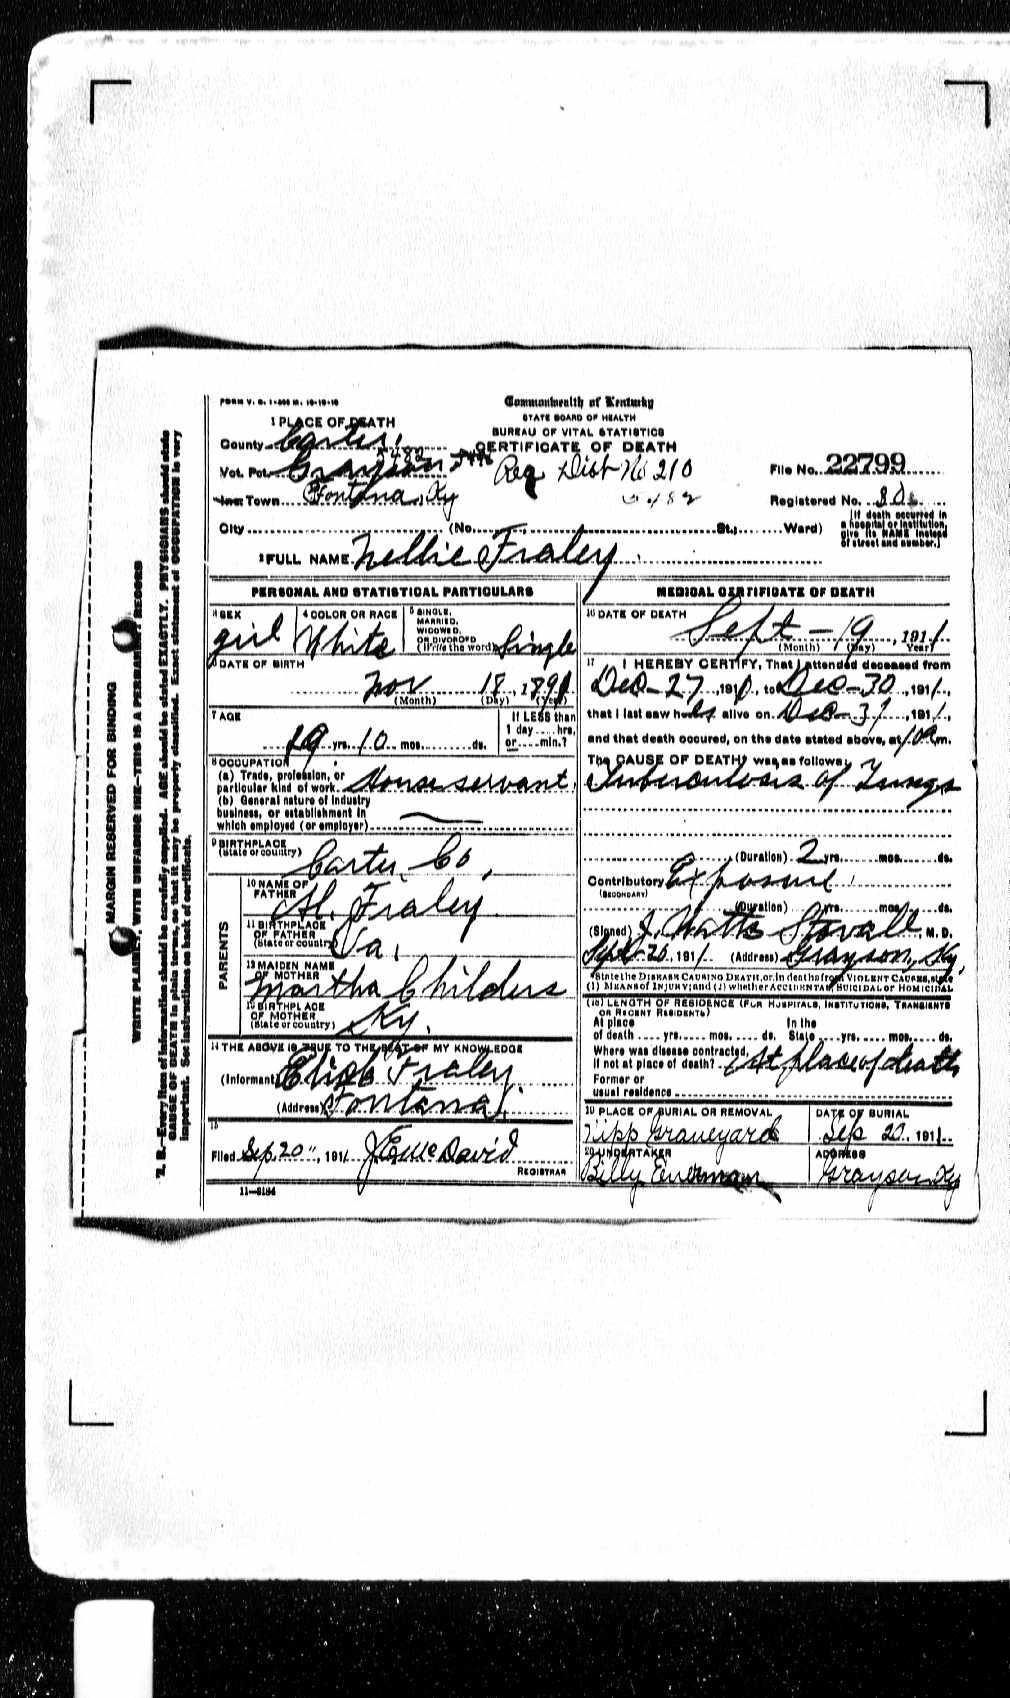 FORM V. S. 1-500 M. 10-19-10
Commonwealth of Kentucky
STATE BOARD OF HEALTH
BUREAU OF VITAL STATISTICS
CERTIFICATE OF DEATH
1 PLACE OF DEATH
County Carter
Vot. Pct. Grayson 5482
Reg Dist No 210
5482
File No. 22799
Inc. Town Fontana, Ky
Registered No. 80
City (No. St.; Ward)
[If death occurred in a hospital or institution, give its NAME instead of street and number.]
2 FULL NAME Nellie Fraley
PERSONAL AND STATISTICAL PARTICULARS
3 SEX girl
4 COLOR OR RACE White
5 SINGLE, MARRIED, WIDOWED, OR DIVORCED (Write the word) Single
6 DATE OF BIRTH
Nov 18, 1891
(Month) (Day) (Year)
7 AGE
19 yrs. 10 mos. ds.
If LESS than 1 day hrs. or min.?
8 OCCUPATION
(a) Trade, profession, or particular kind of work House servant
(b) General nature of industry business, or establishment in which employed (or employer)
9 BIRTHPLACE (State or country) Carter Co,
PARENTS
10 NAME OF FATHER Al. Fraley
11 BIRTHPLACE OF FATHER (State or country) Va.
12 MAIDEN NAME OF MOTHER Martha Childers
13 BIRTHPLACE OF MOTHER (State or country) Ky.
14 THE ABOVE IS TRUE TO THE BEST OF MY KNOWLEDGE
(Informant) Fraley
(Address) Fontana
15
Filed Sep. 20", 1911 McDavid
REGISTRAR
11-3184
MEDICAL CERTIFICATE OF DEATH
16 DATE OF DEATH
Sept-19, 1911
(Month) (Day) (Year)
17 I HEREBY CERTIFY, That I attended deceased from
Dec-27, 1910, to Dec-30, 1911,
that I last saw her alive on Dec-31, 1911,
and that death occured, on the date stated above, at 10 a m.
The CAUSE OF DEATH was as follows:
Tuberculosis of Lungs
(Duration) 2 yrs. mos. ds.
Contributory Exposure
(SECONDARY)
(Duration) yrs. mos. ds.
(Signed) J. Watts Stovall, M. D.
Sept-20, 1911. (Address) Grayson, Ky,
*State the DISEASE CAUSING DEATH, or, in deaths from VIOLENT CAUSES, state
(1) MEANS OF INJURY; and (2) whether ACCIDENTAL, SUICIDAL or HOMICIDAL
(18) LENGTH OF RESIDENCE (FOR HOSPITALS, INSTITUTIONS, TRANSIENTS OR RECENT RESIDENTS)
At place of death yrs. mos. ds. In the State yrs. mos. ds.
Where was disease contracted, if not at place of death? At place of death
Former or usual residence
19 PLACE OF BURIAL OR REMOVAL
Kipp Graveyard
DATE OF BURIAL
Sep 20, 1911
20 UNDERTAKER
Billy
ADDRESS
Grayson Ky
MARGIN RESERVED FOR BINDING
WRITE PLAINLY, WITH UNFADING INK—THIS IS A PERMANENT RECORD
N. B.—Every item of information should be carefully supplied. AGE should be stated EXACTLY. PHYSICIANS should state
CAUSE OF DEATH in plain terms, so that it may be properly classified. Exact statement of OCCUPATION is very
important. See instructions on back of certificate.